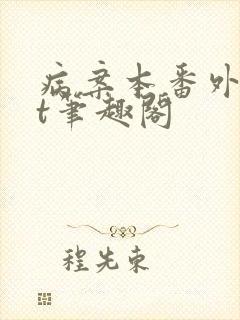 病案本番外
t笔趣阁
程先束